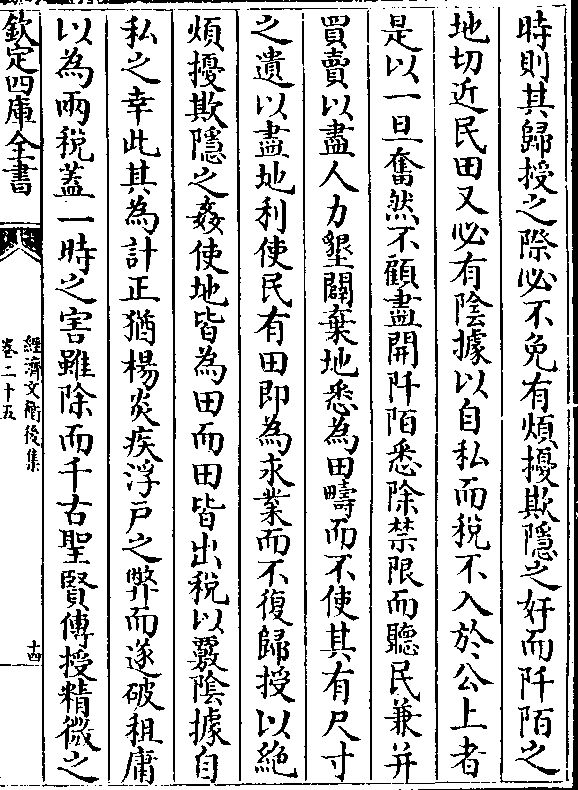 時則其歸授之際必不免有煩擾欺隱之奸而阡陌之
地切近民田又必有陰據以自私而稅不入於公上者
是以一旦奮然不顧盡開阡陌悉除禁限而聽民兼并
買賣以盡人力墾闢棄地悉為田疇而不使其有尺寸
之遺以盡地利使民有田即為永業而不復歸授以絶
煩擾欺隱之姦使地皆為田而田皆出稅以覈陰據自
私之幸此其為計正猶楊炎疾浮戶之弊而遂破租庸
以為兩稅蓋一時之害雖除而千古聖賢傳授精微之
欽定四庫全書
經濟文衡後集
卷二十五
十四